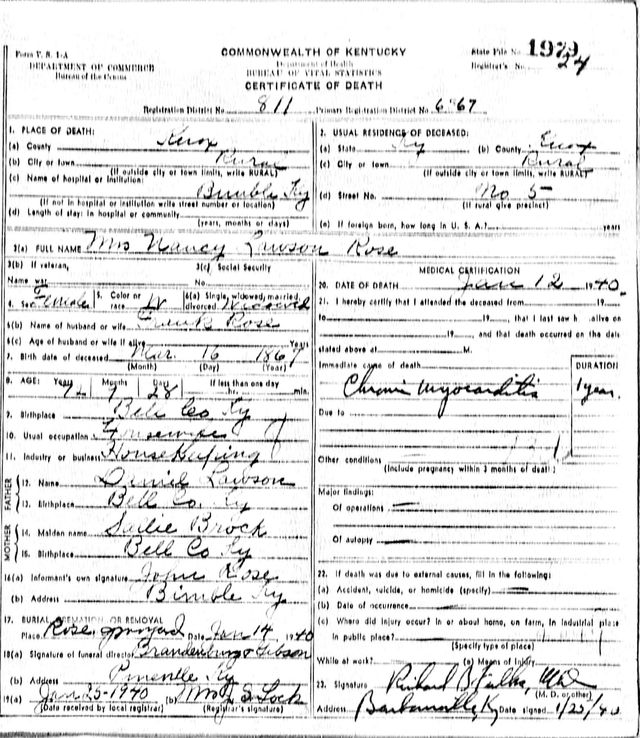 Form V. S. 1-A
DEPARTMENT OF COMMERCE
Bureau of the Census
COMMONWEALTH OF KENTUCKY
Department of Health
BUREAU OF VITAL STATISTICS
CERTIFICATE OF DEATH
State File No. 1979
Registrar's No. 24
Registration District No. 811 Primary Registration District No. 6867
1. PLACE OF DEATH:
(a) County Knox
(b) City or town Rural
(If outside city or town limits, write RURAL)
(c) Name of hospital or institution:
Bimble Ky
(If not in hospital or institution write street number or location)
(d) Length of stay: In hospital or community
(years, months or days)
2. USUAL RESIDENCE OF DECEASED:
(a) State Ky (b) County Knox
(c) City or town Rural
(If outside city or town limits, write RURAL)
(d) Street No. No 5
(If rural give precinct)
(e) If foreign born, how long in U. S. A.? years
3(a) FULL NAME Mrs Nancy Lawson Rose
3(b) If veteran,
Name war
3(c) Social Security
No.
4. Sex Female 5. Color or race W 6(a) Single, widowed, married, divorced Widowed
6(b) Name of husband or wife Frank Rose
6(c) Age of husband or wife if alive Years
7. Birth date of deceased Mar 16 1867
(Month) (Day) (Year)
8. AGE: Years Months Days If less than one day
72 9 28 hr. min.
9. Birthplace Bell Co Ky
10. Usual occupation Housewife
11. Industry or business Housekeeping
FATHER
12. Name Daniel Lawson
13. Birthplace Bell Co. Ky
MOTHER
14. Maiden name Sallie Brock
15. Birthplace Bell Co Ky
16(a) Informant's own signature John Rose
(b) Address Bimble Ky
17. BURIAL, CREMATION, OR REMOVAL
Place Rose graveyard Date Jan 14 1940
18(a) Signature of funeral director Brandenburg & Gibson
(b) Address Pineville Ky
19(a) Jan 25-1940 (b) Mrs J. S. Lock
(Date received by local registrar) (Registrar's signature)
MEDICAL CERTIFICATION
20. DATE OF DEATH Jan 12 1940.
21. I hereby certify that I attended the deceased from 19
to 19, that I last saw h alive on
19, and that death occurred on the date
stated above at M.
Immediate cause of death DURATION
Chronic Myocarditis 1 year.
Due to
Other conditions
(Include pregnancy within 3 months of death)
Major findings:
Of operations
Of autopsy
22. If death was due to external causes, fill in the following:
(a) Accident, suicide, or homicide (specify)
(b) Date of occurrence
(c) Where did injury occur? In or about home, on farm, in industrial place
in public place?
(Specify type of place)
While at work? (e) Means of Injury
23. Signature Richard B. MD
(M. D. or other)
Address Barbourville Ky Date signed 1/25/40